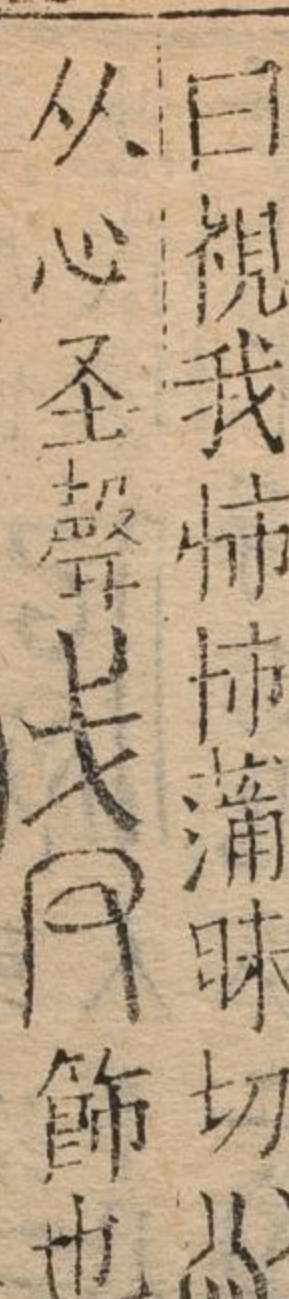 曰視我怖怖蒲昧切
从心圣聲 飾也